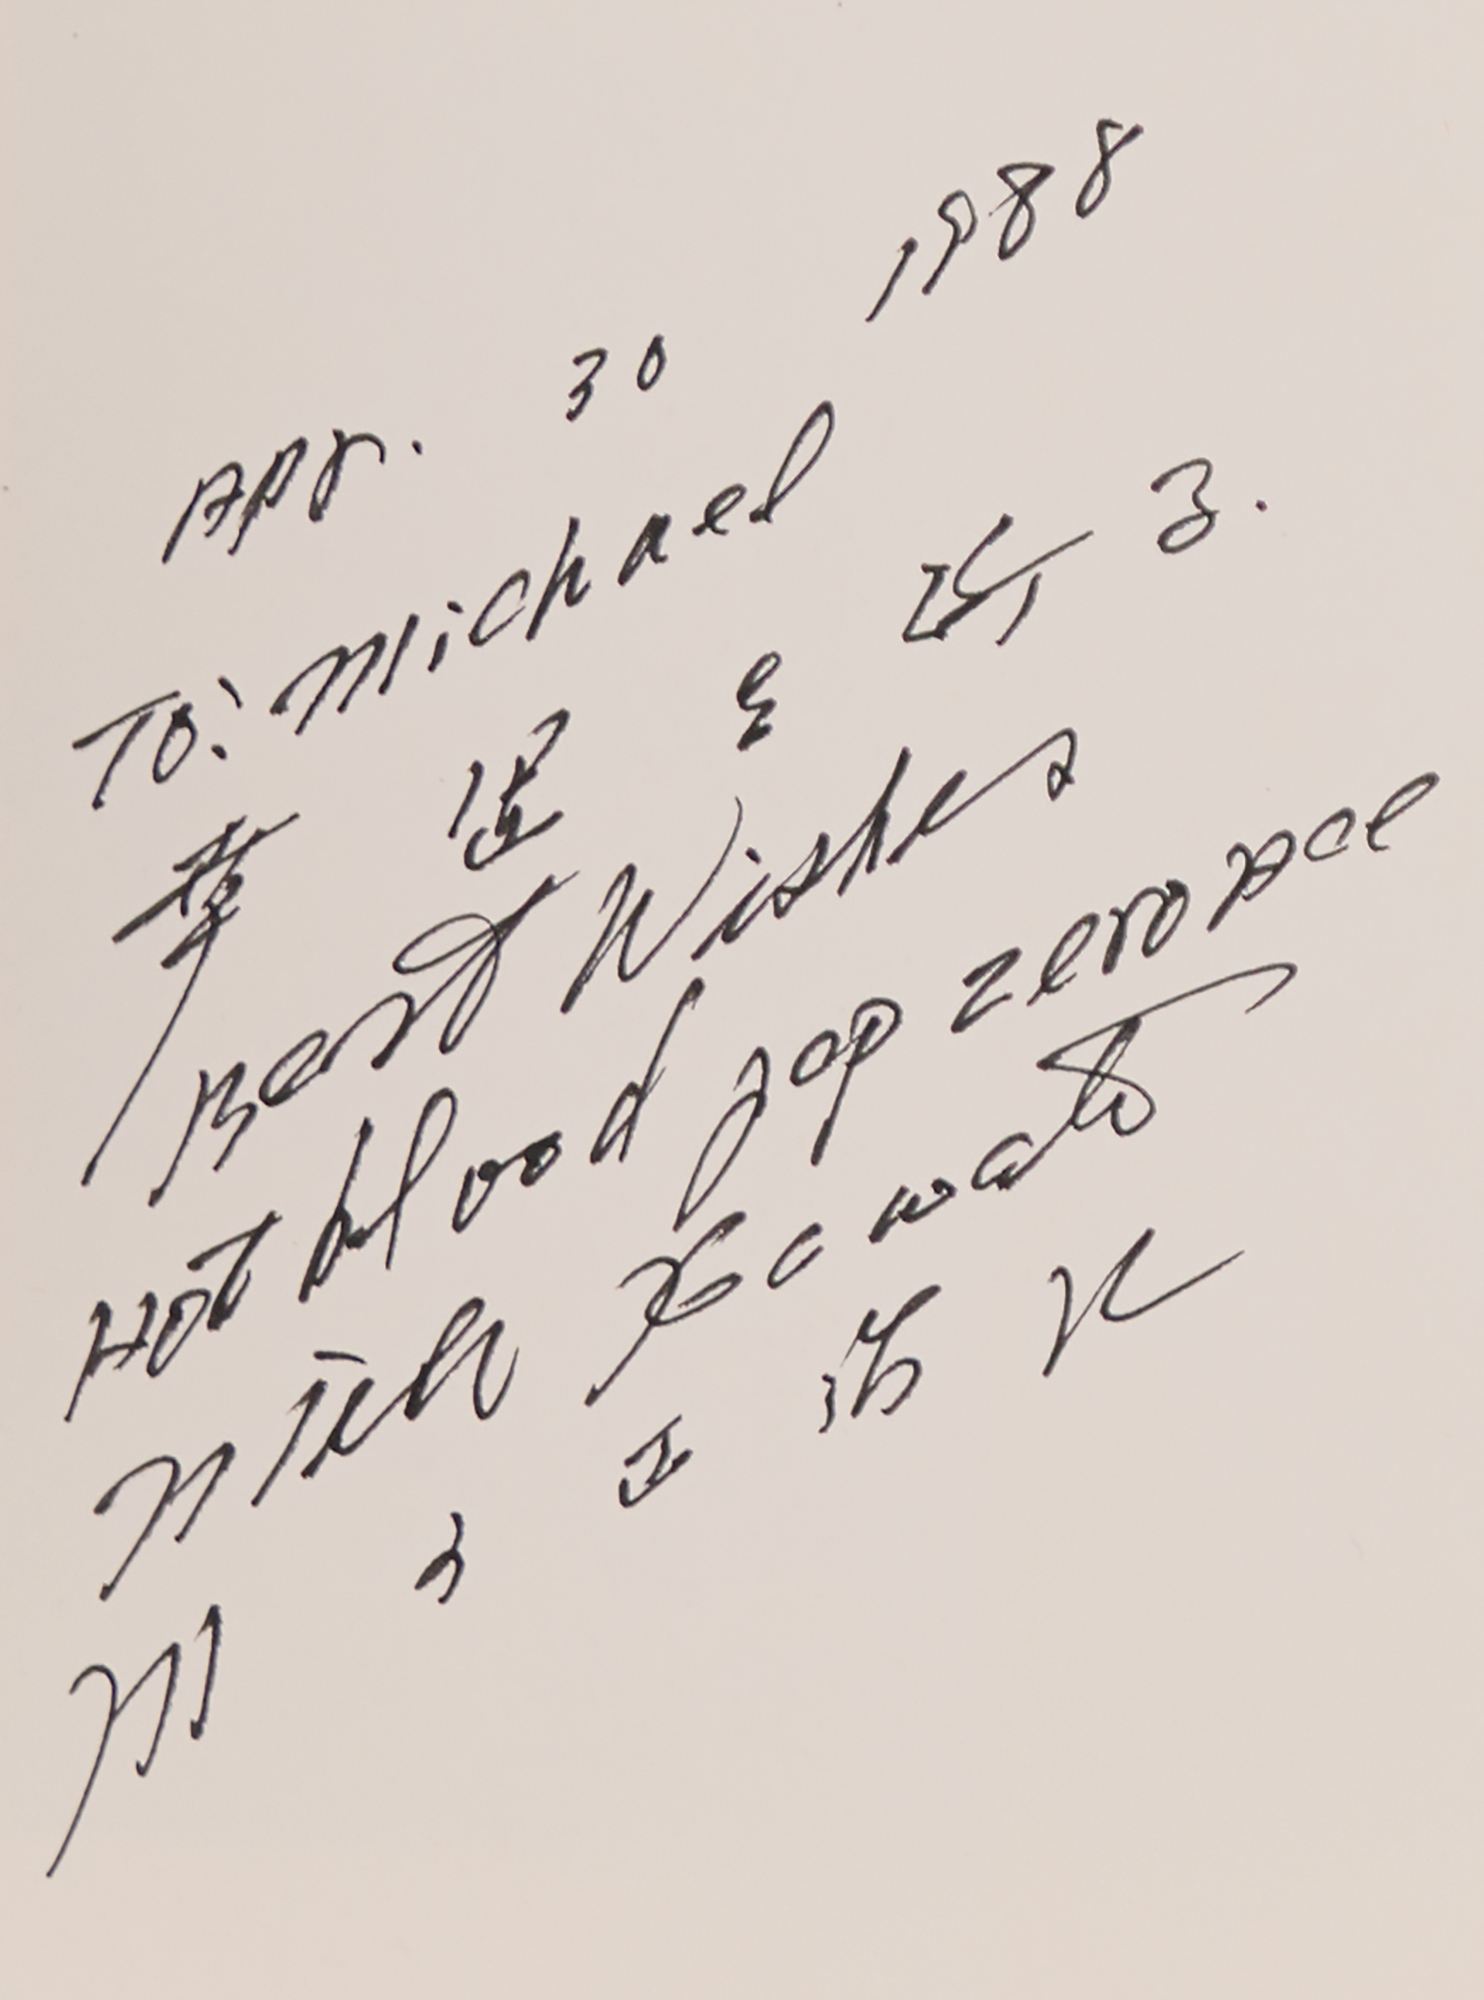 Apr. 30 1988
To: Michael
幸運を祈る.
Best Wishes
Hot blood Jap zero ace
Mike Kawato
川戸正治郎